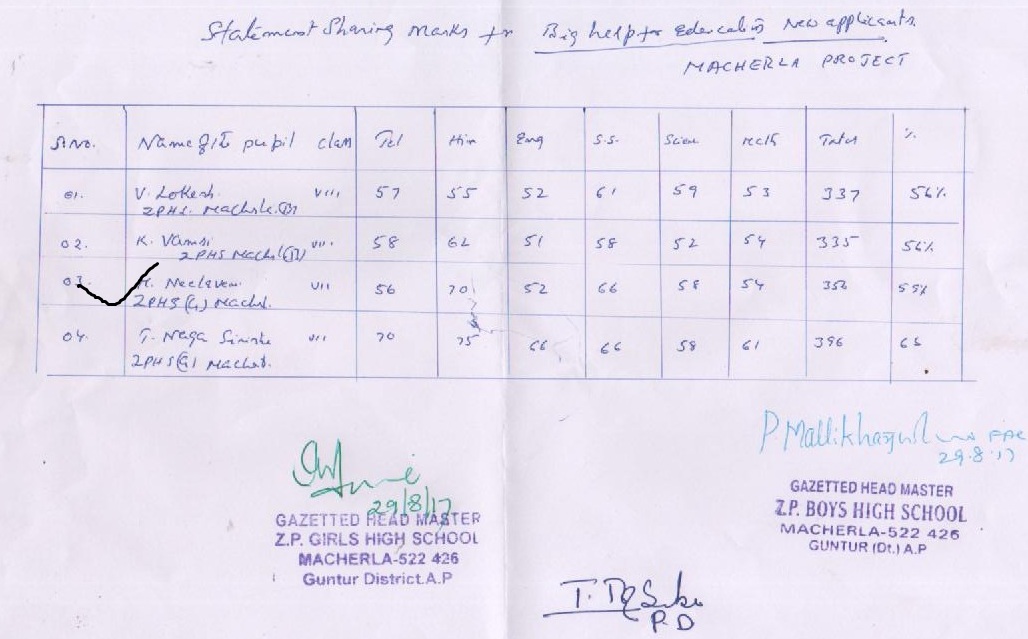 Statement Sharing Marks for Big help for Education New applicants
MACHERLA PROJECT
Sl.No. Name of the pupil class Tel Hin Eng S.S. Scien Math Total %
01. V. Lokesh VIII 57 55 52 61 59 53 337 56%
ZPHS. Machele (B)
02. K. Vamsi VII 58 62 51 58 52 54 335 56%
ZPHS Machl (B)
03. Neelaveni VII 56 70 52 66 58 54 356 59%
ZPHS (G) Machl.
04. T. Naga VII 70 75 66 66 58 61 396 66
ZPHS (G) Machel.
P. Mallikharjun FAC
29.8.17
29/8/17
GAZETTED HEAD MASTER
Z.P. GIRLS HIGH SCHOOL
MACHERLA-522 426
Guntur District.A.P
GAZETTED HEAD MASTER
Z.P. BOYS HIGH SCHOOL
MACHERLA-522 426
GUNTUR (Dt.) A.P
P.D